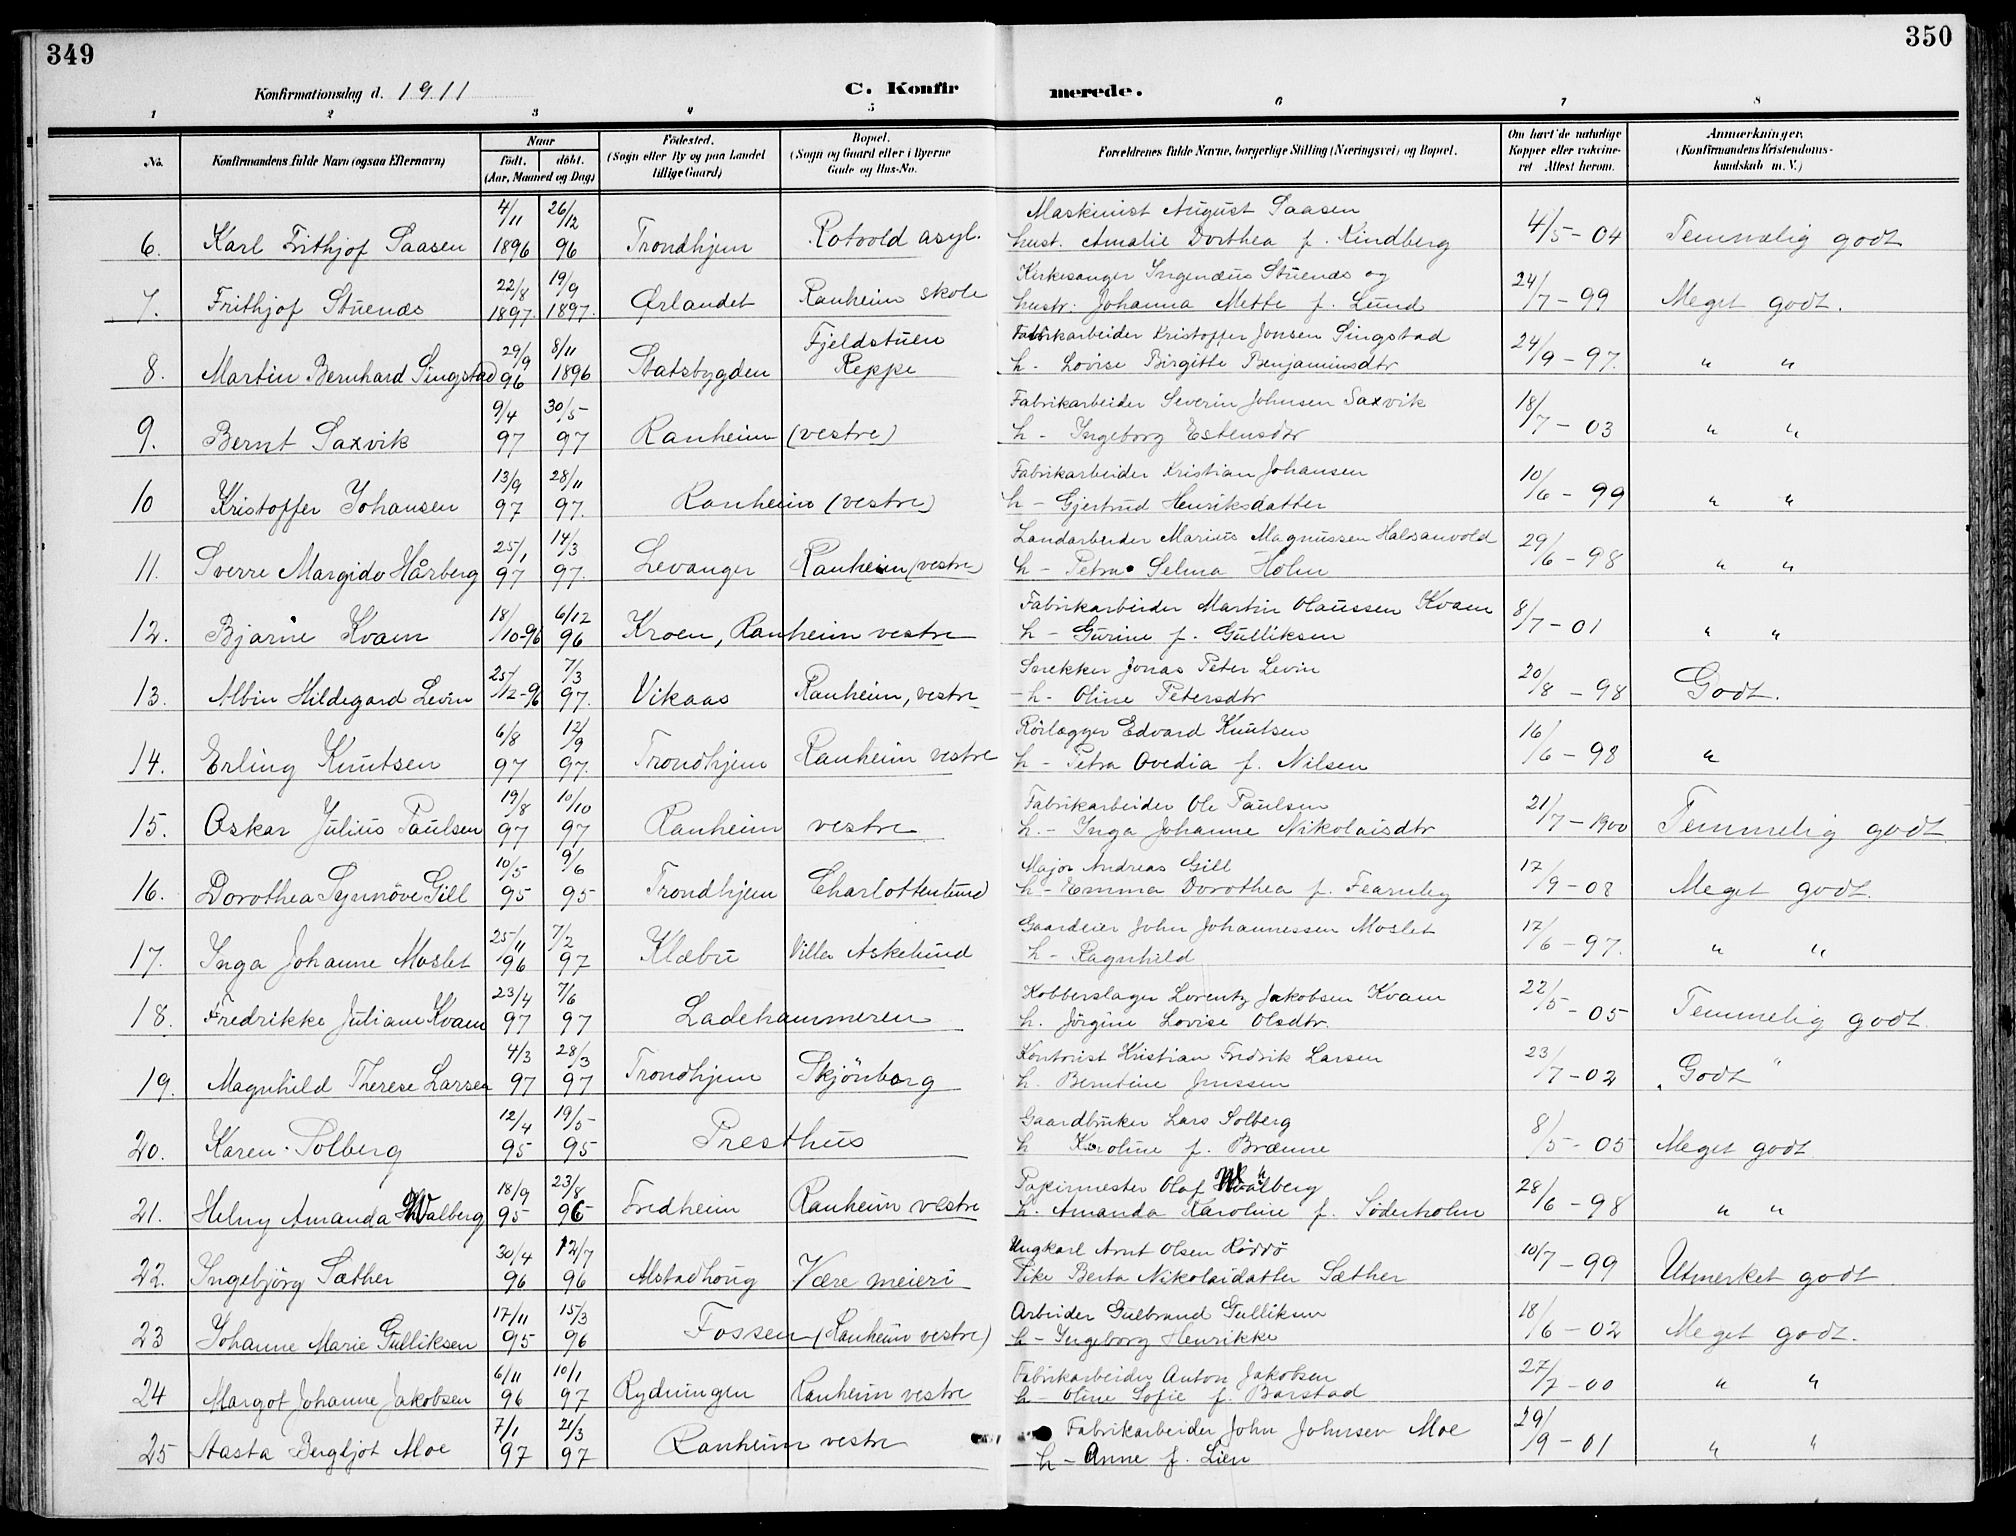 349
350
Konfirmationsdag d. 1911
C. Konfirmerede.
1 2 3 4 5 6 7 8
No.
Konfirmandens fulde Navn (ogsaa Efternavn)
Naar
født. døbt.
(Aar, Maaned og Dag)
Fødested.
(Sogn eller By og paa Landet
tillige Gaard)
Bopæl.
(Sogn og Gaard eller i Byerne
Gade og Hus-No.
Forældrenes fulde Navne, borgerlige Stilling (Næringsvei) og Bopæl.
Om havt de naturlige
Kopper eller vakcine-
ret Attest herom.
Anmærkninger.
(Konfirmandens Kristendoms-
kundskab m. V.)
6. Karl Frithjof Saasen 4/11 1896 26/12 96 Trondhjem Rotvold asyl. Maskinist August Saasen
hust. Amalie Dorthea f. Kindberg 4/5-04 Temmelig godt
7. Frithjof Stuenæs 22/8 1897. 19/9 1897. Ørlandet Ranheim skole Kirkesanger Ingenæus Stuenæs og
hustr: Johanna Mette f. Lund 24/7-99 Meget godt.
8. Martin Bernhard Singstad 29/9 96 8/11 1896 Statsbygden Fjeldstuen
Reppe Fabrikarbeider Kristoffer Jonsen Singstad
h. Lovise Birgitte Benjaminsdtr 24/9-97. " "
9. Bernt Saxvik 9/4 97 30/5 97 Ranheim (vestre) Fabrikarbeider Severin Johnsen Saxvik
h- Ingeborg Estensdtr 18/7-03 " "
10 Kristoffer Johansen 13/9 97 28/11 97. Ranheim (vestre) Fabrikarbeider Kristian Johansen
h- Gjertrud Henriksdatter 10/6-99 " "
11. Sverre Margido Hårberg 25/1 97 14/3 97. Levanger Ranheim (vestre) Landarbeider Marius Magnussen Halsanvold
h- Petra Selma Holm 29/6-98 " "
12. Bjarne Kvam 18/10-96 6/12 96 Kroen, Ranheim vestre Fabrikarbeider Martin Olaussen Kvam
h- Gurine f. Gulliksen 8/7-01 " "
13. Albin Hildegard Levin 25/12-96 7/3 97. Vikaas Ranheim, vestre Snekker Jonas Peter Levin
-h- Oline Petersdtr 20/8-98 Godt.
14. Erling Knutsen 6/8 97 12/9 97. Trondhjem Ranheim vestre Rörlægger Edvard Knutsen
h- Petra Ovedia f. Nilsen 16/6-98 "
15. Oskar Julius Paulsen 19/8 97 10/10 97 Ranheim vestre Fabrikarbeider Ole Paulsen
h.- Inga Johanne Nikolaisdtr 21/7-1900 Temmelig godt
16. Dorothea Synnöve Gill 10/5 95 9/6 95 Trondhjem Charlottenlund Major Andreas Gill
h- Emma Dorothea f. Fearnley 17/9-08 Meget godt.
17. Inga Johanne Moslet 25/11 96 7/2 97 Klæbu Villa Askelund Gaardeier John Johannessen Moslet
h- Ragnhild 17/6-97. " "
18. Fredrikke Juliane Kvam 23/4 97 7/6 97 Ladehammeren Kobberslager Lorentz Jakobsen Kvam
h. Jörgine Lovise Olsdtr. 22/5-05 Temmelig godt.
19. Magnhild Therese Larsen 4/3 97 28/3 97 Trondhjem Skjönborg Kontorist Kristian Fredrik Larsen
h. Berntine Jenssen 23/7-02 Godt "
20. Karen Solberg 12/4 95 19/5 95 Presthus Gaardbruker Lars Solberg
h Karoline f. Brænne 8/5-05 Meget godt
21. Helny Amanda Walberg 18/9 95 23/8 96 Fredheim Ranheim vestre Papirmester Olaf Walberg
h. Amanda Karoline f. Söderholm 28/6-98 " "
22. Ingebjörg Sæther 30/4 96 12/7 96 Alstadhoug Være meieri Ungkarl Arnt Olsen Röddö
Pike Berta Nikolaidatter Sæther 10/7-99 Utmerket godt
23 Johanne Marie Gulliksen 17/11 95 15/3 96 Fossen (Ranheim vestre) Arbeider Gulbrand Gulliksen
h- Ingeborg Henrikke 18/6-02 Meget godt.
24 Margot Johanne Jakobsen 6/11 96 10/1 97 Rydningen Ranheim vestre Fabrikarbeider Anton Jakobsen
h- Oline Sofie f. Barstad 27/7-00 " "
25 Aasta Bergljot Moe 7/1 97 21/3 97 Ranheim vestre Fabrikarbeider John Johnsen Moe
h- Anne f. Lien 29/9-01 " "